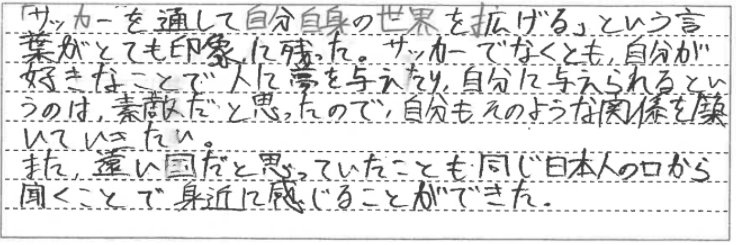 「サッカーを通して自分自身の世界を拡げる」という言
葉がとても印象に残った。サッカーでなくとも、自分が
好きなことで人に夢を与えたり、自分に与えられるとい
うのは、素敵だと思ったので、自分もそのような関係を築
いていきたい。
また、遠い国だと思っていたことも同じ日本人の口から
聞くことで身近に感じることができた。